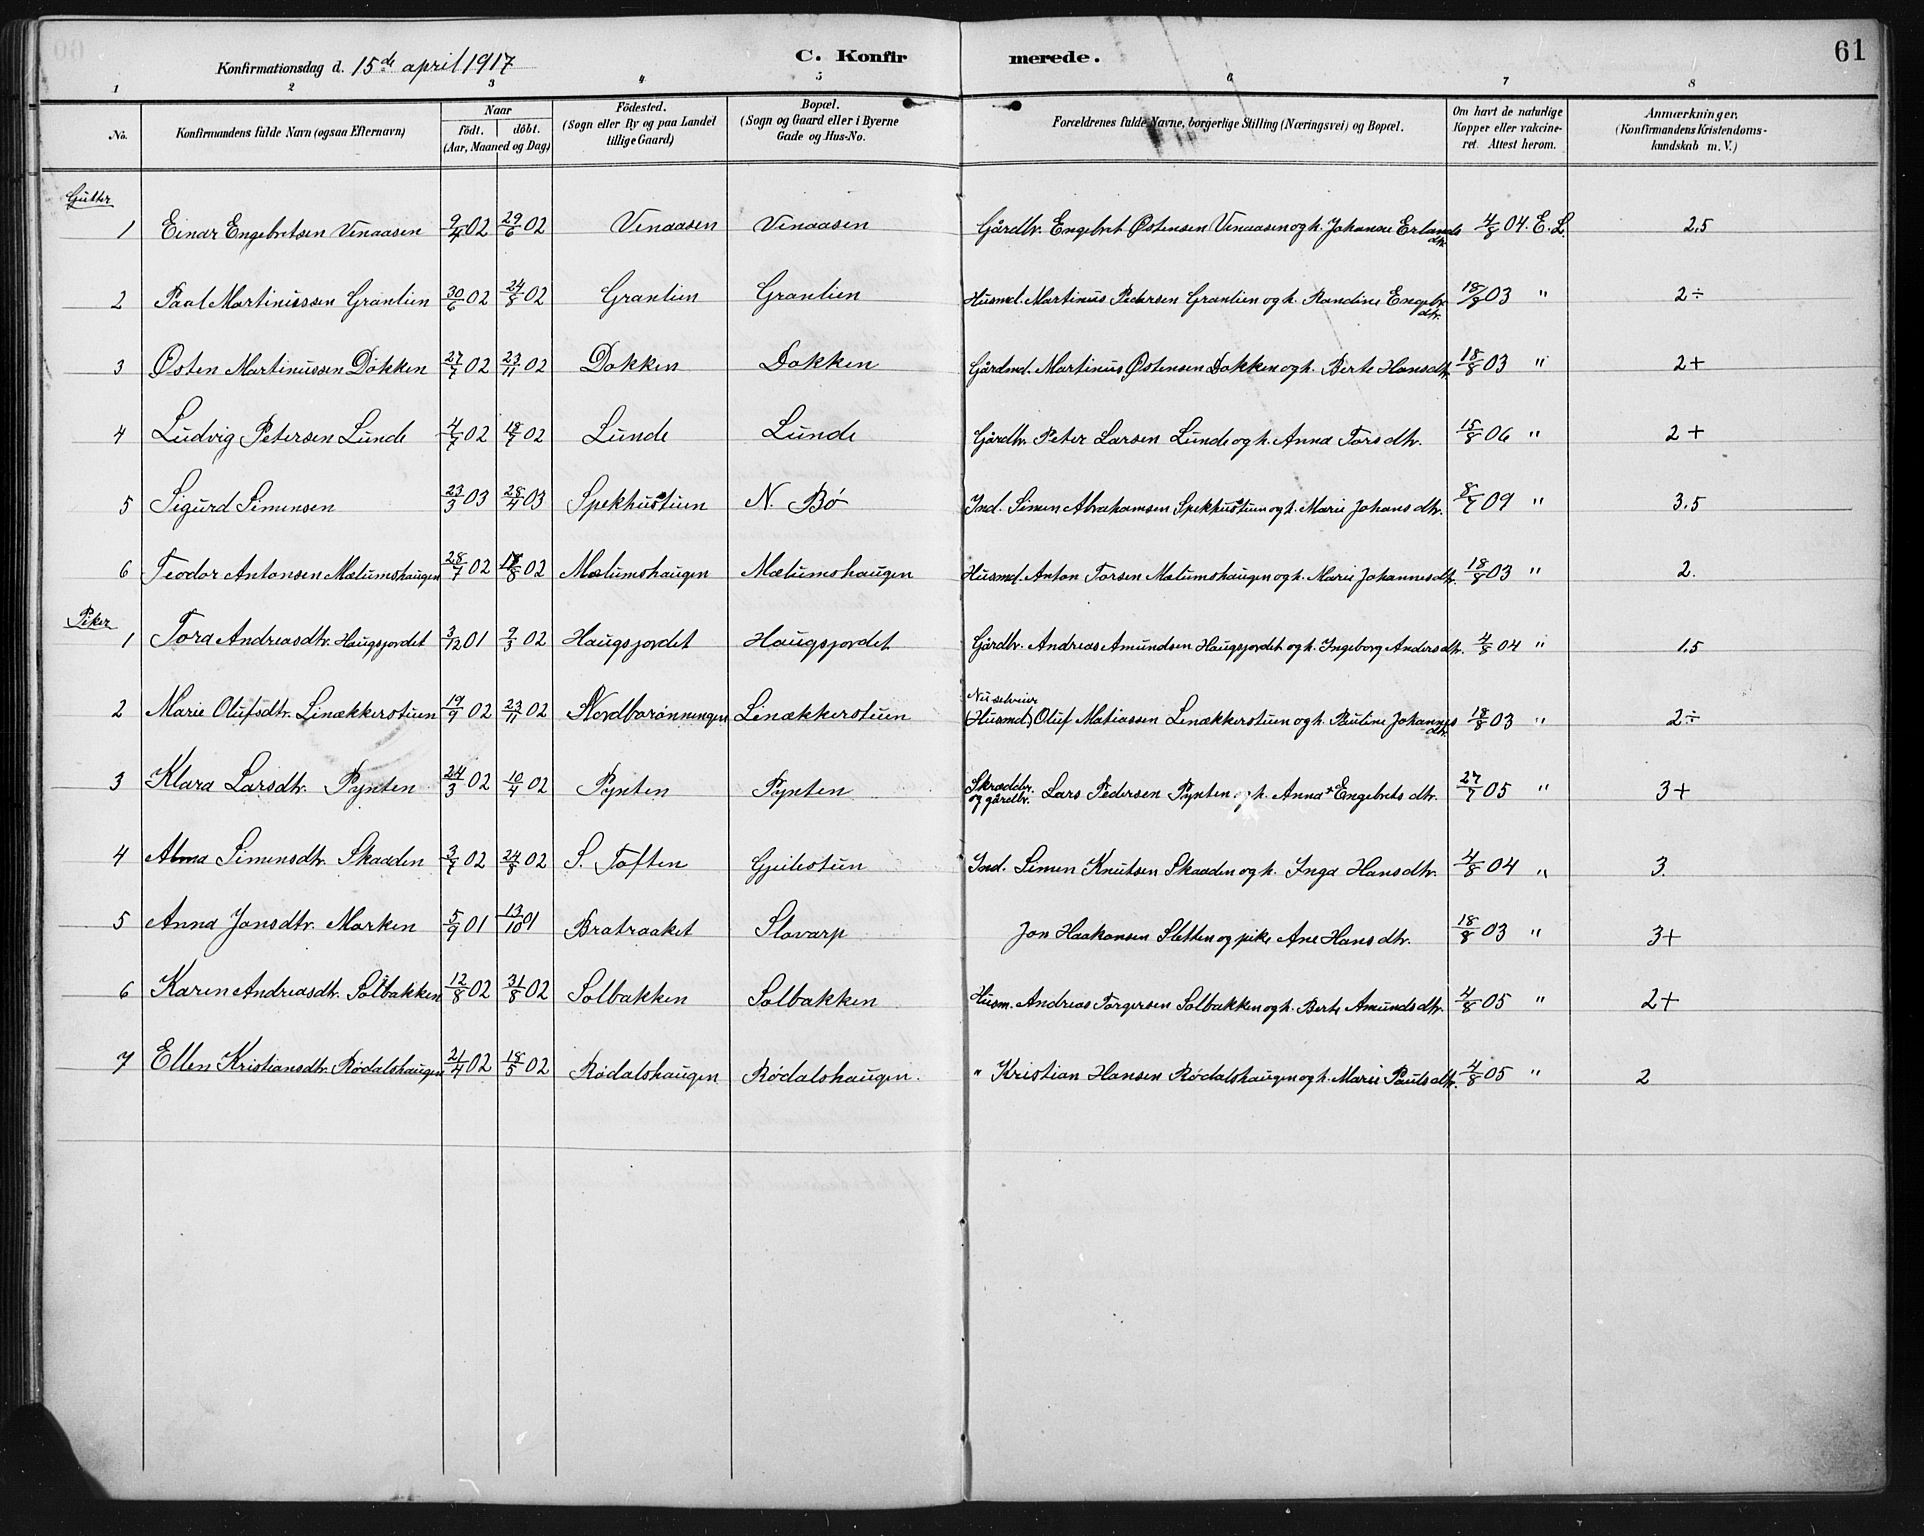 61
Konfirmationsdag d. 15de april 1917
C. Konfirmerede.
1 2 3 4 5 6 7 8
No. | Konfirmandens fulde Navn (ogsaa Efternavn) | Naar födt. döbt. (Aar, Maaned og Dag) | Födested. (Sogn eller By og paa Landet tillige Gaard) | Bopæl. (Sogn og Gaard eller i Byerne Gade og Hus-No. | Forældrenes fulde Navne, borgerlige Stilling (Næringsvei) og Bopæl. | Om havt de naturlige Kopper eller vakcineret. Attest herom. | Anmærkninger. (Konfirmandens Kristendomskundskab m. V.)
Gutter
1 | Einar Engebretsen Venaasen | 9/4 02 | 29/6 02 | Venaasen | Venaasen | Gårdbr. Engebret Østensen Venaasen og h. Johanne Erlandsdtr. | 4/8 04. E. L. | 2,5
2 | Paal Martinussen Granlien | 30/6 02 | 24/8 02 | Granlien | Granlien | Husmd. Martinus Pedersen Granlien og h. Randine Engebr.dtr. | 18/8 03 " | 2÷
3 | Østen Martinussen Dokken | 27/7 02 | 23/11 02 | Dokken | Dokken | Gårdmd. Martinus Østensen Dokken og h. Berte Hansdtr. | 18/8 03 " | 2+
4 | Ludvig Petersen Lunde | 4/7 02 | 18/7 02 | Lunde | Lunde | Gårdbr. Peter Larsen Lunde og h. Anna Torsdtr. | 15/8 06 " | 2+
5 | Sigurd Simensen | 23/3 03 | 28/4 03 | Spekhustuen | N. Bø | Ind. Simen Abrahamsen Spekhustuen og h. Marie Johansdtr. | 8/7 09 " | 3.5
6 | Teodor Antonsen Mælumshaugen | 28/7 02 | /8 02 | Mælumshaugen | Mælumshaugen | Husmd. Anton Torsen Mælumshaugen og h. Marie Johannesdtr. | 18/8 03 " | 2.
Piker
1 | Tora Andreasdtr. Haugsjordet | 3/12 01 | 9/3 02 | Haugsjordet | Haugsjordet | Gårdbr. Andreas Amundsen Haugsjordet og h. Ingeborg Andersdtr. | 4/8 04 " | 1,5
2 | Marie Olufsdtr. Linækkerstuen | 19/9 02 | 23/11 02 | Nordbarønningen | Linækkerstuen | Nu selveier (Husmd) Oluf Matiassen Linækkerstuen og h. Pauline Johannesdtr. | 18/8 03 " | 2÷
3 | Klara Larsdtr. Pynten | 24/3 02 | 10/4 02 | Pynten | Pynten | Skrædder og gårdbr. Lars Pedersen Pynten og h. Anna + Engebretsdtr. | 27/7 05 " | 3+
4 | Alma Simensdtr. Skaaden | 3/7 02 | 24/8 02 | S. Toften | Gjeilestuen | Ind. Simen Knutsen Skaaden og h. Inga Hansdtr. | 4/8 04 " | 3.
5 | Anna Jonsdtr. Marken | 5/9 01 | 13/10 01 | Bratraaket | Slovarp | Jon Haakonsen Sletten og pike Ane Hansdtr. | 18/8 03 " | 3+
6 | Karen Andreasdtr. Solbakken | 12/8 02 | 31/8 02 | Solbakken | Solbakken | Husm. Andreas Torgersen Solbakken og h. Berte Amundsdtr. | 4/8 05 " | 2+
7 | Ellen Kristiansdtr. Rødalshaugen | 21/4 02 | 18/5 02 | Rødalshaugen | Rødalshaugen. | " Kristian Hansen Rødalshaugen og h. Marie Paulsdtr. | 4/8 05 " | 2